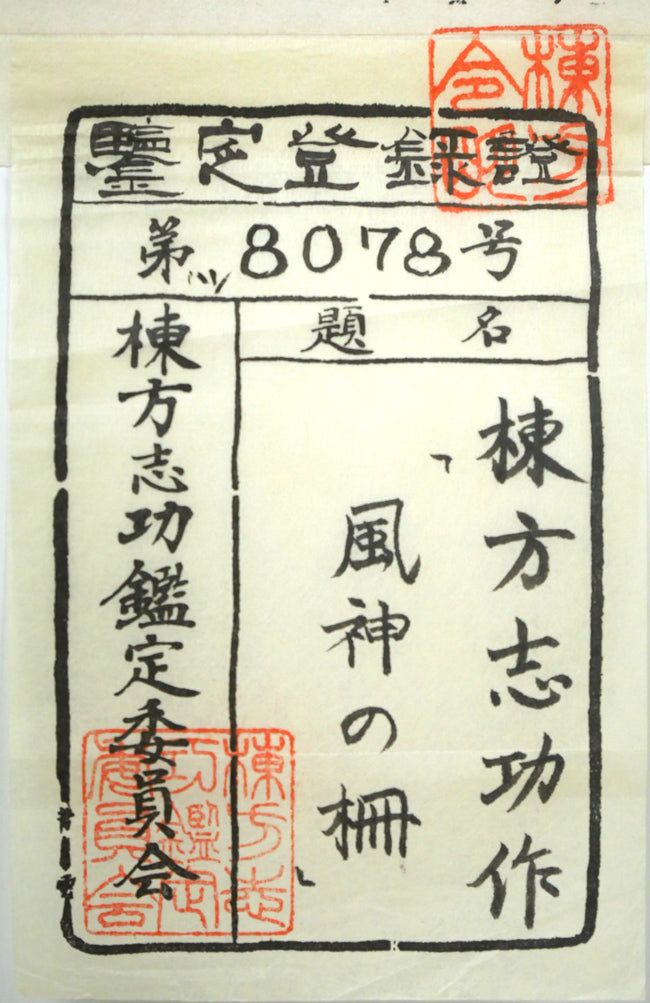 鑒定登録證
第8078号
題名
棟方志功作
「風神の柵」
棟方志功鑑定委員会
棟方志功鑑定委員会